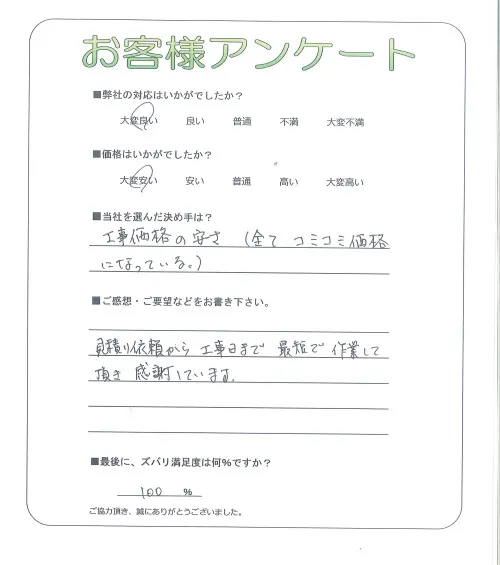 お客様アンケート
■弊社の対応はいかがでしたか？
大変良い 良い 普通 不満 大変不満
■価格はいかがでしたか？
大変安い 安い 普通 高い 大変高い
■当社を選んだ決め手は？
工事価格の安さ（全てコミコミ価格
になっている。）
■ご感想・ご要望などをお書き下さい。
見積り依頼から工事日まで最短で作業して
頂き感謝しています。
■最後に、ズバリ満足度は何％ですか？
100 %
ご協力頂き、誠にありがとうございました。